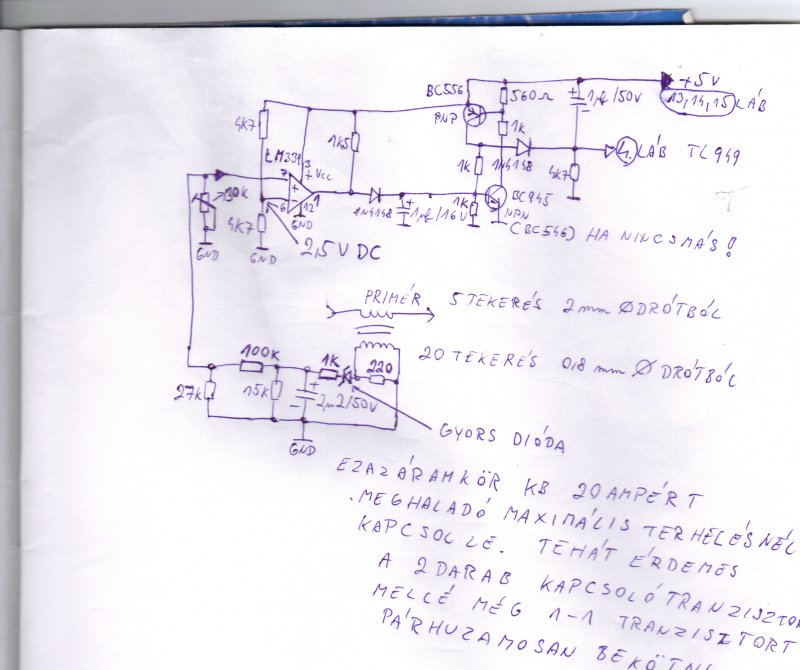 BC556
560Ω
1µf/50V
+5V
13,14,15 LÁB
4K7
PNP
1k5
1k
LM339
3
+Vcc
1k
1N4148
4. LÁB TL949
7
+
10k
1
4K7
6
12
GND
1N4148
+
1µf/16V
1K
BC945
NPN
(BC546) HA NINCS MÁS!
4K7
GND
GND
2,5V DC
PRIMÉR
5 TEKERÉS 2mm Ø DRÓTBÓL
20 TEKERÉS 0,8 mm Ø DRÓTBÓL
100K
1K
220
27k
15k
+
2µ2/50V
GND
GYORS DIÓDA
EZ AZ ÁRAMKÖR KB 20 AMPÉRT
MEGHALADÓ MAXIMÁLIS TERHELÉSNÉL
KAPCSOL LE. TEHÁT ÉRDEMES
A 2 DARAB KAPCSOLÓ TRANZISZTOR
MELLÉ MÉG 1-1 TRANZISZTORT
PÁRHUZAMOSAN BEKÖTNI